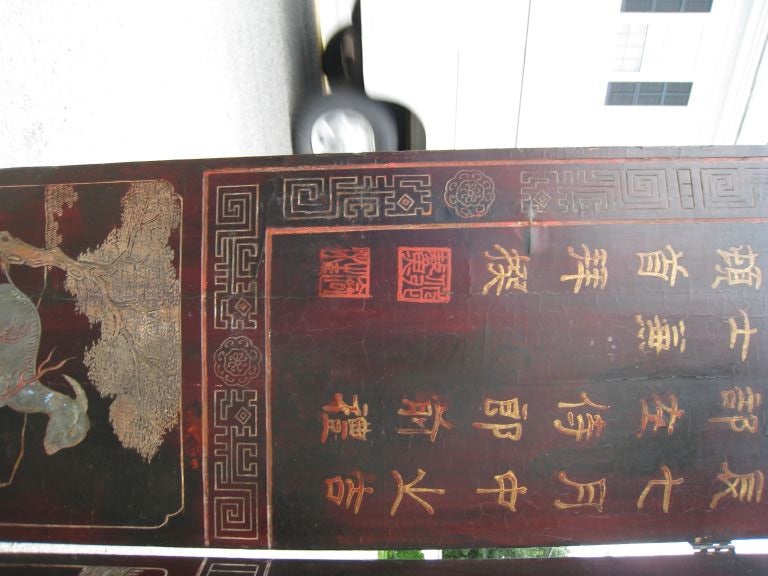 辰七月中吉
部左侍郎前禮
士
頓首拜撰